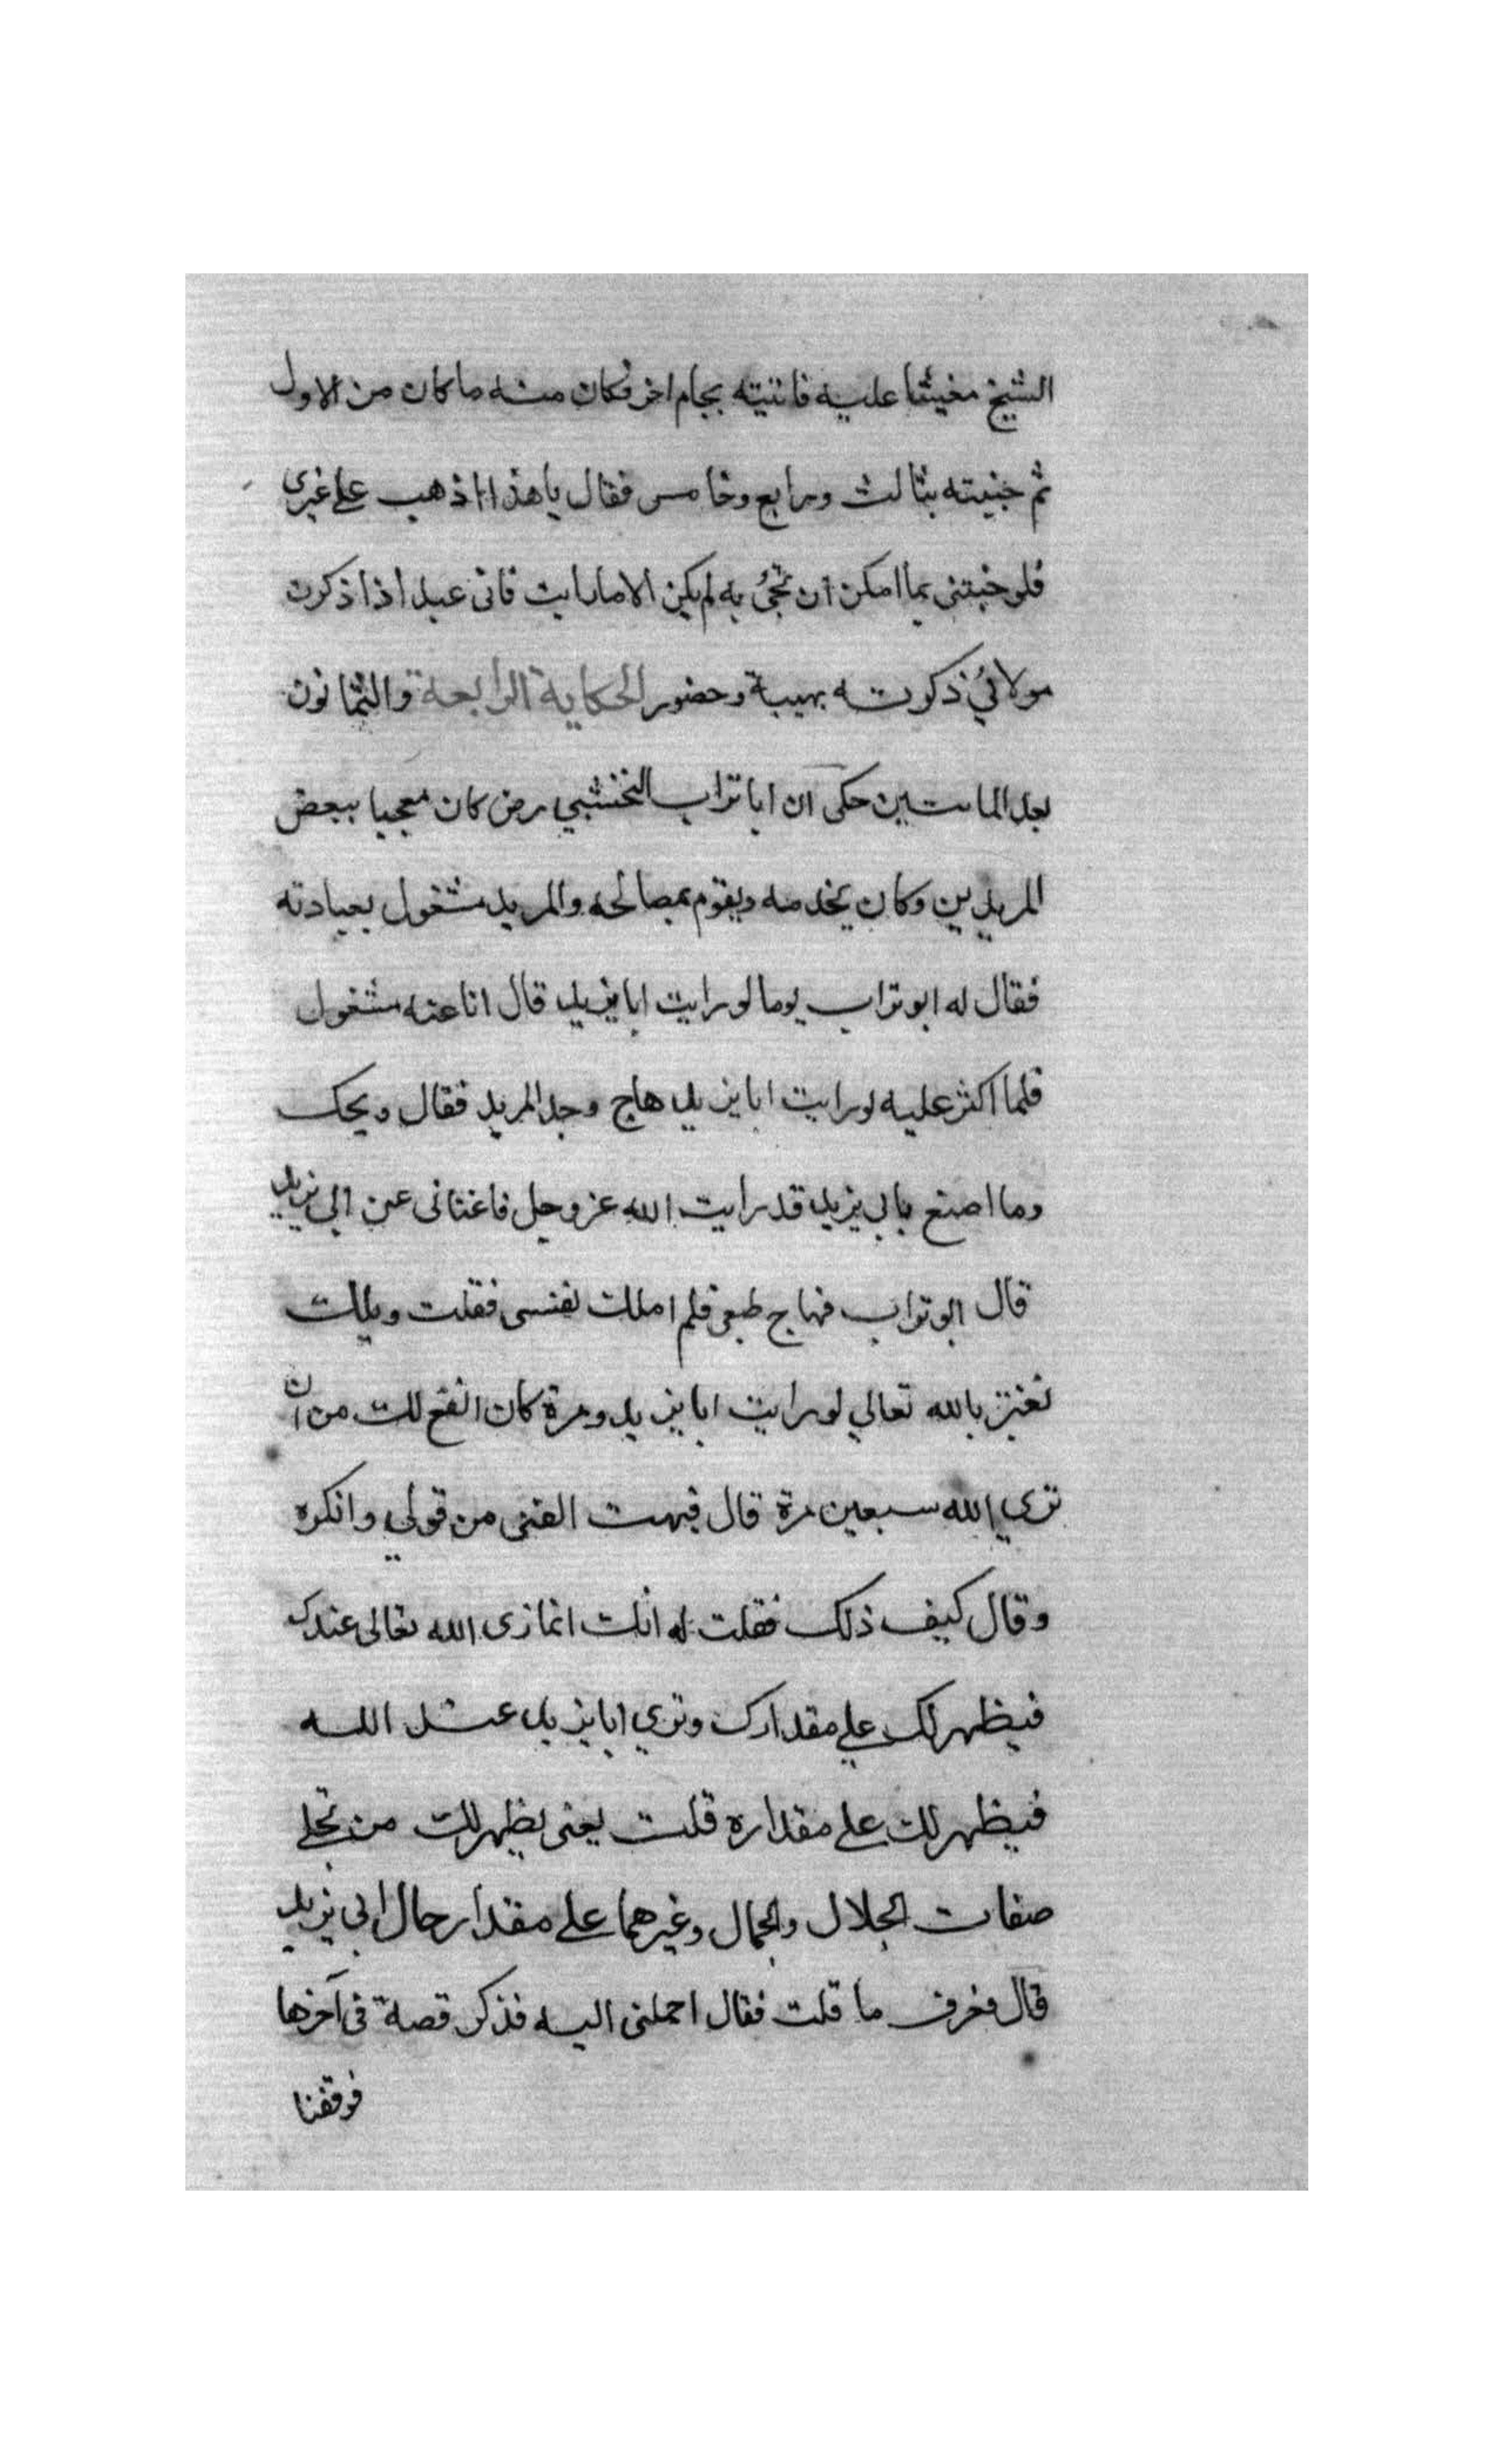 الشيخ مغيشا عليه فاتنيته بجام اخر فكان منه ما كان من الاول
ثم جنيته بثالث ورابع وخامس فقال يا هذا اذهب على غيرى
فلو جيتنى بما امكن ان تجئ به لم يكن الا ما رايت فانى عبد اذا ذكرت
مولائي ذكرته بهيبة وحضور الحكاية الرابعة والثمانون
بعد المائتين حكى ان ابا تراب النخشبي رض كان معجبا ببعض
المريدين وكان يخدمه ويقوم بمصالحه والمريد مشغول بعبادته
فقال له ابو تراب يوما لو رايت ابا يزيد قال انا عنه مشغول
فلما اكثر عليه لو رايت ابا يزيد هاج وجد المريد فقال ويحك
وما اصنع بابي يزيد قد رايت الله عز وجل فاغنانى عن ابي يزيد
قال ابو تراب فهاج طبعى فلم املك نفسى فقلت ويلك
تغتز بالله تعالي لو رايت ابا يزيد ومرة كان انفع لك من ان
تري الله سبعين مرة قال فبهت الفتى من قولي وانكره
وقال كيف ذلك فقلت له انك انما ترى الله تعالى عندك
فيظهر لك علي مقدارك وتري ابا يزيد عند الله
فيظهر لك على مقداره قلت يعنى يظهر لك من تجلى
صفات الجلال والجمال وغيرهما على مقدار حال ابي يزيد
قال فعرف ما قلت فقال احملنى اليه فذكر قصة فى آخرها
فوقفنا